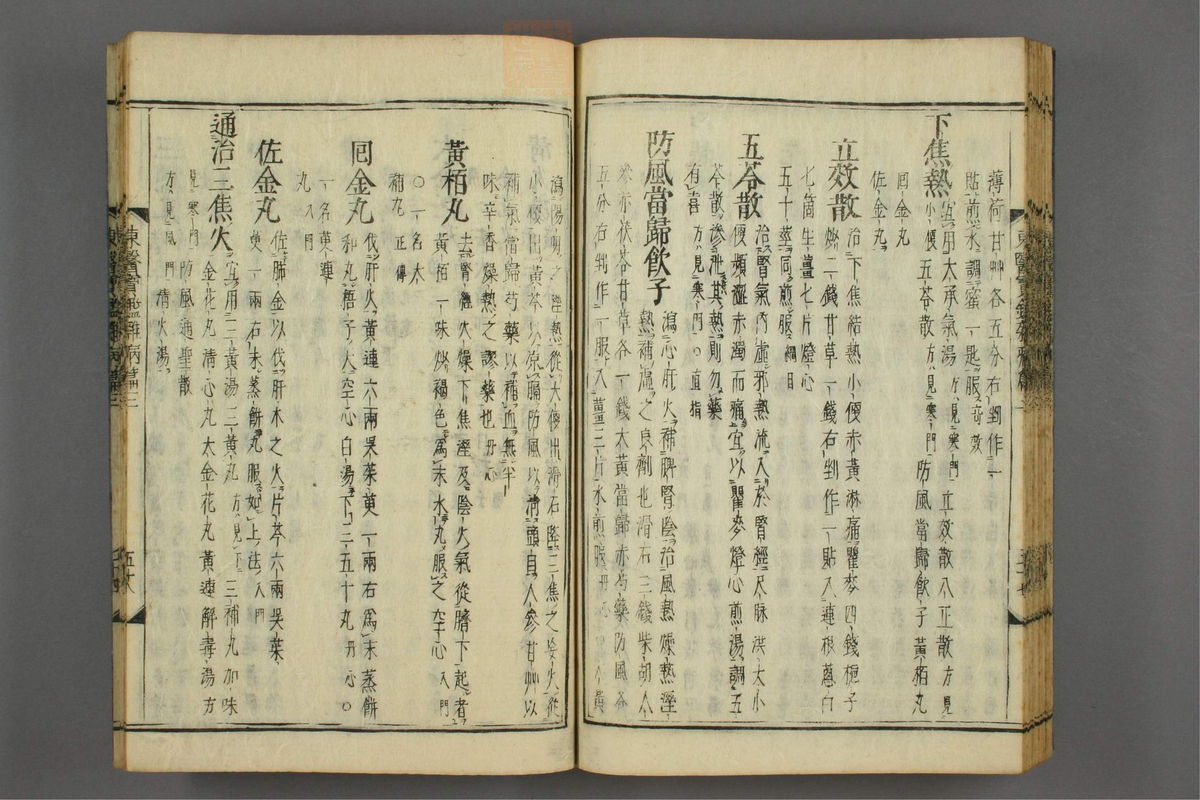 薄荷甘艸各五分右剉作一
貼煎水調蜜一匙服奇效
下焦熱宜用大承氣湯方見寒門立效散八正散方見
小便五苓散方見寒門防風當歸飮子黃栢丸
回金丸
佐金丸
立效散治下焦結熱小便赤黃淋痛瞿麥四錢梔子
炒二錢甘草一錢右剉作一貼入連根葱白
七箇生薑七片燈心
五十莖同煎服綱目
五苓散治腎氣內虛邪熱流入於腎經尺脉洪大小
便頻澁赤濁而痛宜以瞿麥燈心煎湯調五
苓散滲泄其熱則勿藥
有喜方見寒門○直指
防風當歸飮子瀉心肝火補脾腎陰治風熱燥熱溼
熱補虛之良劑也滑石三錢柴胡人
參赤茯苓甘草各一錢大黃當歸赤芍藥防風各
五分右剉作一服入薑三片水煎服丹心
瀉陽明之溼熱從大便出滑石降三焦之妄火從
小便出黃芩以凉膈防風以淸頭目人參甘艸以
補氣當歸芍藥以補血無半
味辛香燥熱之謬藥也丹心
黃栢丸去腎經火燥下焦溼及陰火氣從臍下起者
黃栢一味炒褐色爲末水丸服之空心入門
○一名大
補丸正傳
回金丸伐肝火黃連六兩吳茱萸一兩右爲末蒸餅
和丸梧子大空心白湯下三五十丸丹心○
一名萸連
丸入門
佐金丸佐肺金以伐肝木之火片芩六兩吳茱
萸一兩右末蒸餠丸服如上法入門
通治三焦火宜用三黃湯三黃丸方見下三補丸加味
金花丸淸心丸大金花丸黃連解毒湯方
見寒門防風通聖散
方見風門淸火湯